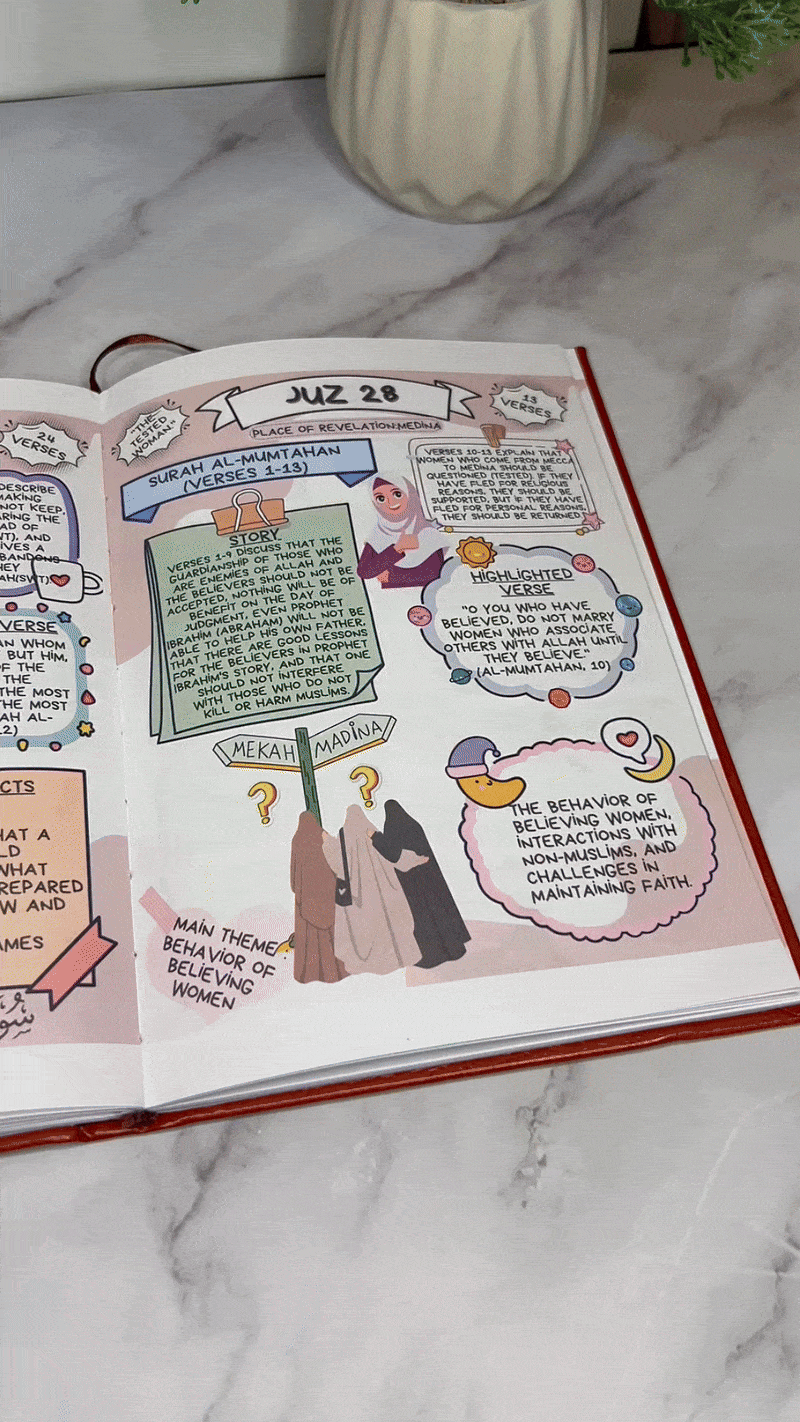 24
VERSES
DESCRIBE
MAKING
NOT KEEP,
RING THE
AD OF
T), AND
IVES A
BANDONS
HEY
AH(SWT)
VERSE
AN WHOM
BUT HIM,
OF THE
THE
THE MOST
THE MOST
AH AL-
2)
CTS
HAT A
LD
WHAT
REPARED
W AND
AMES
"THE
TESTED
WOMAN"
JUZ 28
PLACE OF REVELATION:MEDINA
13
VERSES
SURAH AL-MUMTAHAN
(VERSES 1-13)
STORY
VERSES 1-9 DISCUSS THAT THE
GUARDIANSHIP OF THOSE WHO
ARE ENEMIES OF ALLAH AND
THE BELIEVERS SHOULD NOT BE
ACCEPTED, NOTHING WILL BE OF
BENEFIT ON THE DAY OF
JUDGMENT, EVEN PROPHET
IBRAHIM (ABRAHAM) WILL NOT BE
ABLE TO HELP HIS OWN FATHER,
THAT THERE ARE GOOD LESSONS
FOR THE BELIEVERS IN PROPHET
IBRAHIM'S STORY, AND THAT ONE
SHOULD NOT INTERFERE
WITH THOSE WHO DO NOT
KILL OR HARM MUSLIMS.
VERSES 10-13 EXPLAIN THAT
WOMEN WHO COME FROM MECCA
TO MEDINA SHOULD BE
QUESTIONED (TESTED). IF THEY
HAVE FLED FOR RELIGIOUS
REASONS, THEY SHOULD BE
SUPPORTED, BUT IF THEY HAVE
FLED FOR PERSONAL REASONS,
THEY SHOULD BE RETURNED.
HIGHLIGHTED
VERSE
"O YOU WHO HAVE
BELIEVED, DO NOT MARRY
WOMEN WHO ASSOCIATE
OTHERS WITH ALLAH UNTIL
THEY BELIEVE."
(AL-MUMTAHAN, 10)
MEKAH MADINA
? ?
THE BEHAVIOR OF
BELIEVING WOMEN,
INTERACTIONS WITH
NON-MUSLIMS, AND
CHALLENGES IN
MAINTAINING FAITH.
MAIN THEME
BEHAVIOR OF
BELIEVING
WOMEN